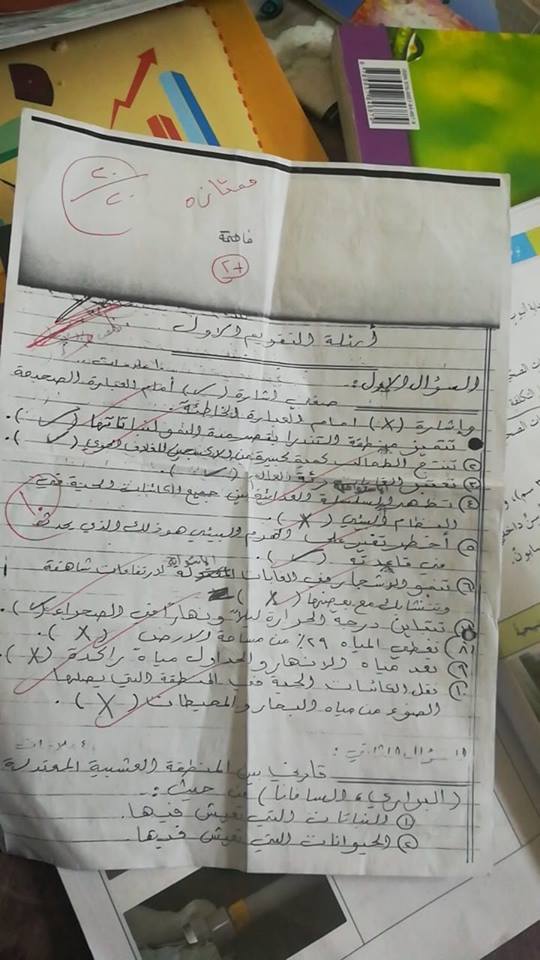 ممتازه
٢٠
٢٠
فاهمة
+٢
أسئلة التقويم الاول
السؤال الاول:
ضعي اشارة (✓) أمام العبارة الصحيحة
واشارة (X) امام العبارة الخاطئة
تتميز منطقة التندرا بقصر مدة النمو لنباتاتها (✓).
② تنتج الطحالب كمية كبيرة من الاكسجين للغلاف الجوي (✓).
③ تعتبر الغابات رئة العالم (✓).
④ تظهر السلسلة الغذائية بين جميع الكائنات الحية في
النظام البيئي (X).
⑤ أخطر تغير على الهرم البيئي هو ذلك الذي يحدث
في قاعدته (✓).
⑥ تنمو الاشجار في الغابات الاستوائية لارتفاعات شاهقة
وتتشابك مع بعضها (X)
تتباين درجة الحرارة ليلاً ونهاراً في الصحراء (✓).
⑧ تغطي المياه ٢٩٪ من مساحة الارض (X).
⑨ تعد مياه الانهار والجداول مياه راكدة (X).
⑩ تقل الكائنات الحية في المنطقة التي يصلها
الضوء من مياه البحار والمحيطات (X).
١٠
السؤال الثاني:
قارني بين المنطقة العشبية المعتدلة
(البراري)، السافانا) من حيث:
① النباتات التي تعيش فيها.
② الحيوانات التي تعيش فيها.